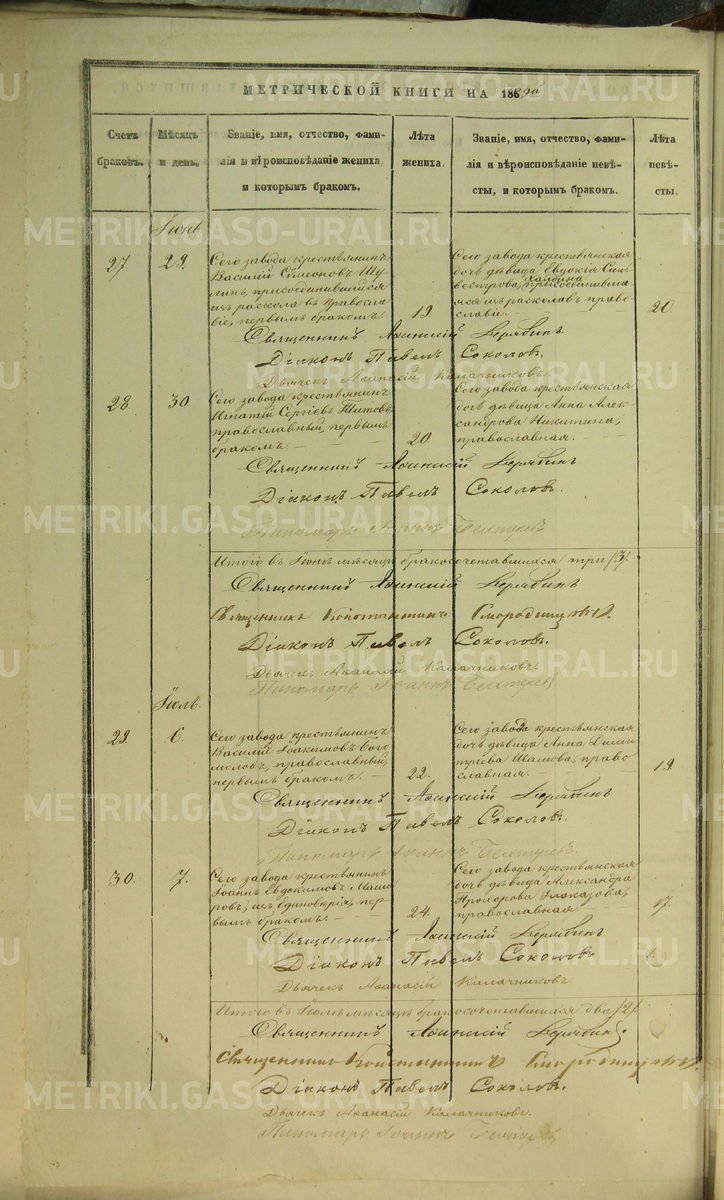 МЕТРИЧЕСКОЙ КНИГИ НА 1869й
Счетъ
браковъ.
Мѣсяцъ
и день.
Званіе, имя, отчество, фами-
лія и вѣроисповѣданіе жениха,
и которымъ бракомъ.
Лѣта
жениха.
Званіе, имя, отчество, фами-
лія и вѣроисповѣданіе невѣ-
сты, и которымъ бракомъ.
Лѣта
невѣ-
сты.
Іюнь.
27
29.
Сего завода крестьянинъ
Василій Сѵмеоновъ Шу
линъ, присоединившійся
изъ раскола въ Правосла
віе, первымъ бракомъ.
19.
Сего завода крестьянская
дочь дѣвица Евдокія Силь
вестрова, присоединивша
яся изъ раскола въ право-
славіе.
20.
Священникъ Верябинъ
Діаконъ Павелъ Соколовъ.
Дьячекъ Аѳанасій Калачниковъ.
28.
30
Сего завода крестьянинъ
Игнатій Сергіевъ Титовъ
православный, первымъ
бракомъ.
20.
Сего завода крестьянская
дочь дѣвица Анна Алек-
сандрова Никитина,
православная.
Священникъ Верябинъ
Діаконъ Павелъ Соколовъ.
Пономарь
Итого въ Іюнѣ мѣсяцѣ бракосочетавшихся три /3/.
Священникъ Верябинъ
Священникъ Константинъ Смородинцовъ.
Діаконъ Павелъ Соколовъ.
Дьячекъ Аѳанасій Калачниковъ
Пономарь Іоаннъ
Іюль.
29.
6.
Сего завода крестьянинъ
Василій Іоакимовъ Бого
моловъ, православный,
первымъ бракомъ.
22.
Сего завода крестьянская
дочь дѣвица Анна Дими
тріева Шамова, право
славная.
19.
Священникъ Верябинъ
Діаконъ Павелъ Соколовъ.
Пономарь Іоаннъ
30.
7.
Сего завода крестьянинъ
Іоаннъ Евдокимовъ Мака
ровъ, изъ Единовѣрія, пер-
вымъ бракомъ.
24.
Сего завода крестьянская
дочь дѣвица Александра
Прохорова Глаказова,
православная.
17.
Священникъ Верябинъ
Діаконъ Павелъ Соколовъ
Дьячекъ Аѳанасій Калачниковъ
Итого въ Іюлѣ мѣсяцѣ бракосочетавшихся два /2/.
Священникъ Верябинъ.
Священникъ Константинъ Смородинцовъ.
Діаконъ Павелъ Соколовъ.
Дьячекъ Аѳанасій Калачниковъ.
Пономарь Іоаннъ
METRIKI.GASO-URAL.RU